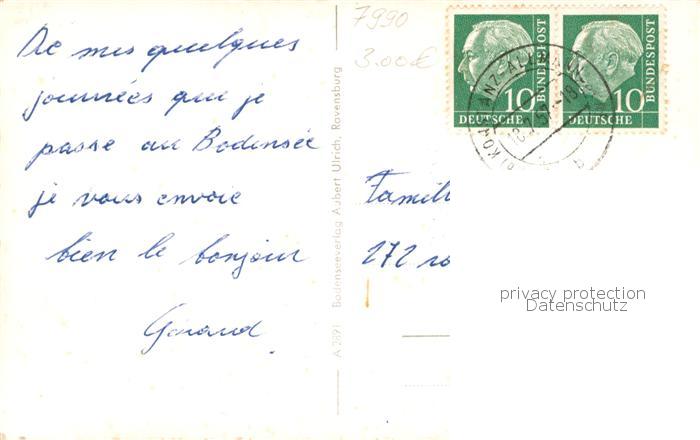 De mes quelques
journées que je
passe au Bodensée
je vous envoie
bien le bonjour
Gérard
A 2891 Bodenseeverlag Aubert Ulrich, Ravensburg
7990
3.00€
10 BUNDESPOST
DEUTSCHE
10 BUNDESPOST
DEUTSCHE
Famill
272
privacy protection
Datenschutz